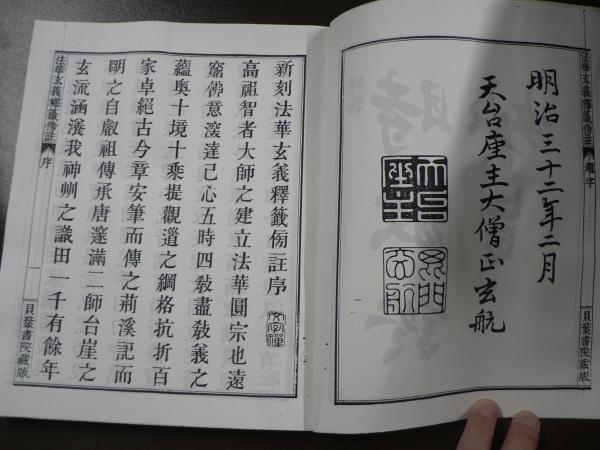 法華玄義釋籤傍註
題字
貝葉書院藏版
明治三十二年二月
天台座主大僧正玄航
天台
座主
新刻法華玄義釋籤傍註序
高祖智者大師之建立法華圓宗也遠
窮佛意深達己心五時四敎盡敎義之
蘊奥十境十乘提觀道之綱格抗折百
家卓絕古今章安筆而傳之荊溪記而
明之自叡祖傳承唐邃滿二師台崖之
玄流涵潑我神州之識田一千有餘年
法華玄義釋籤傍註
序
一
貝葉書院藏版